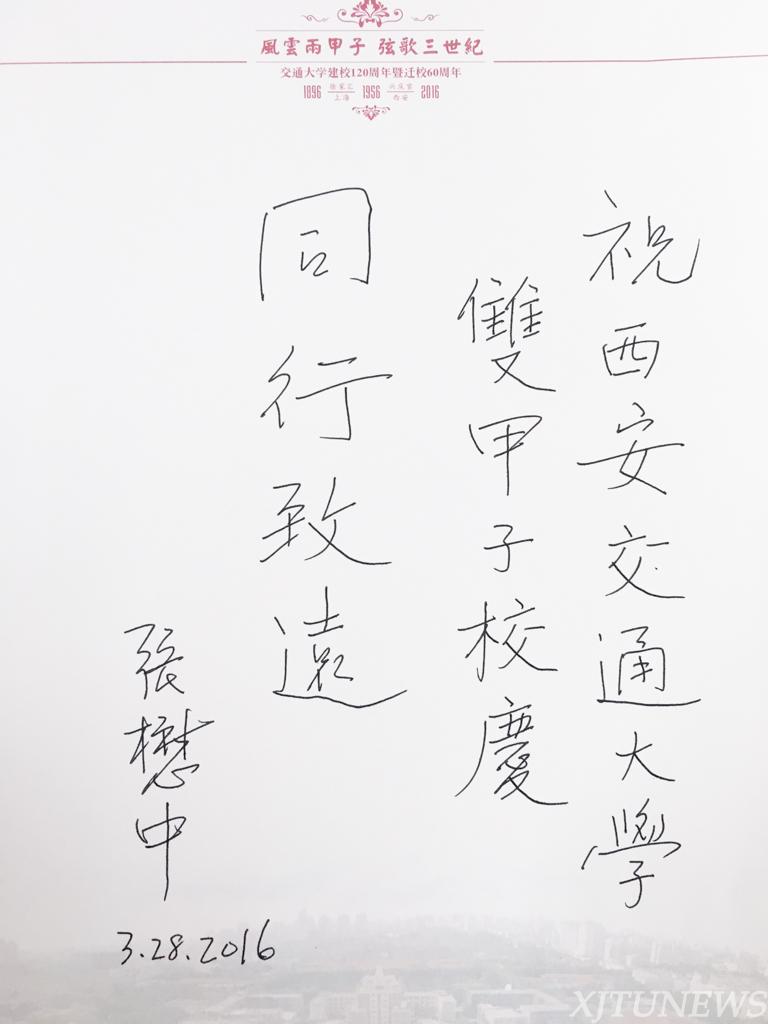 風雲兩甲子 弦歌三世紀
交通大学建校120周年暨迁校60周年
1896 徐家汇 上海 1956 兴庆宫 西安 2016
祝西安交通大學
雙甲子校慶
同行致遠
張懋中
3.28.2016
XJTUNEWS